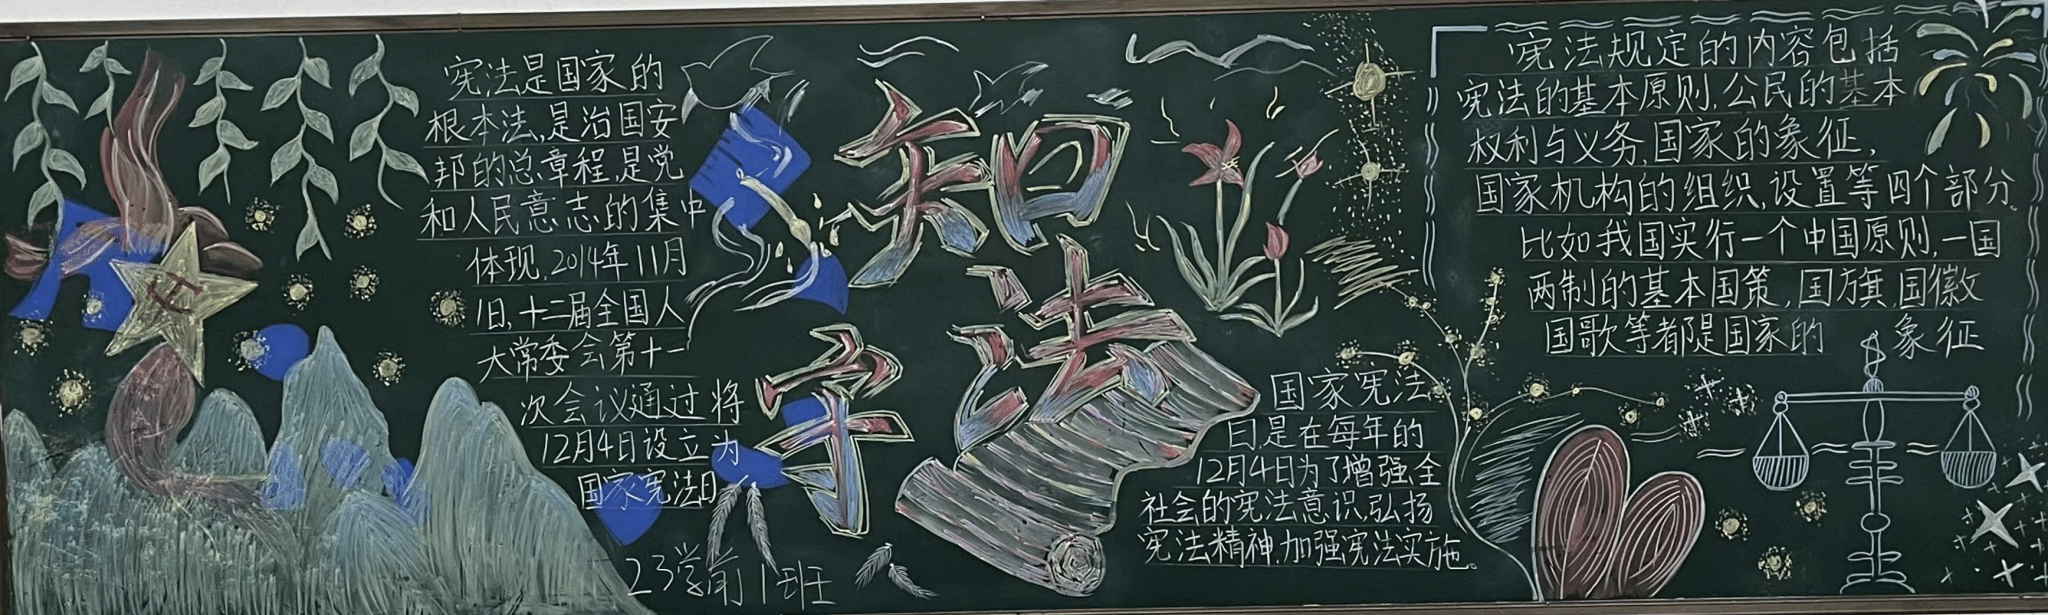 宪法是国家的
根本法,是治国安
邦的总章程,是党
和人民意志的集中
体现,2014年11月
1日,十二届全国人
大常委会第十一
次会议通过将
12月4日设立为
国家宪法日
23学前1班
知
法
守
法
国家宪法
日是在每年的
12月4日为了增强全
社会的宪法意识弘扬
宪法精神,加强宪法实施。
宪法规定的内容包括
宪法的基本原则,公民的基本
权利与义务,国家的象征,
国家机构的组织,设置等四个部分。
比如我国实行一个中国原则,一国
两制的基本国策,国旗,国徽
国歌等都是国家的 象征